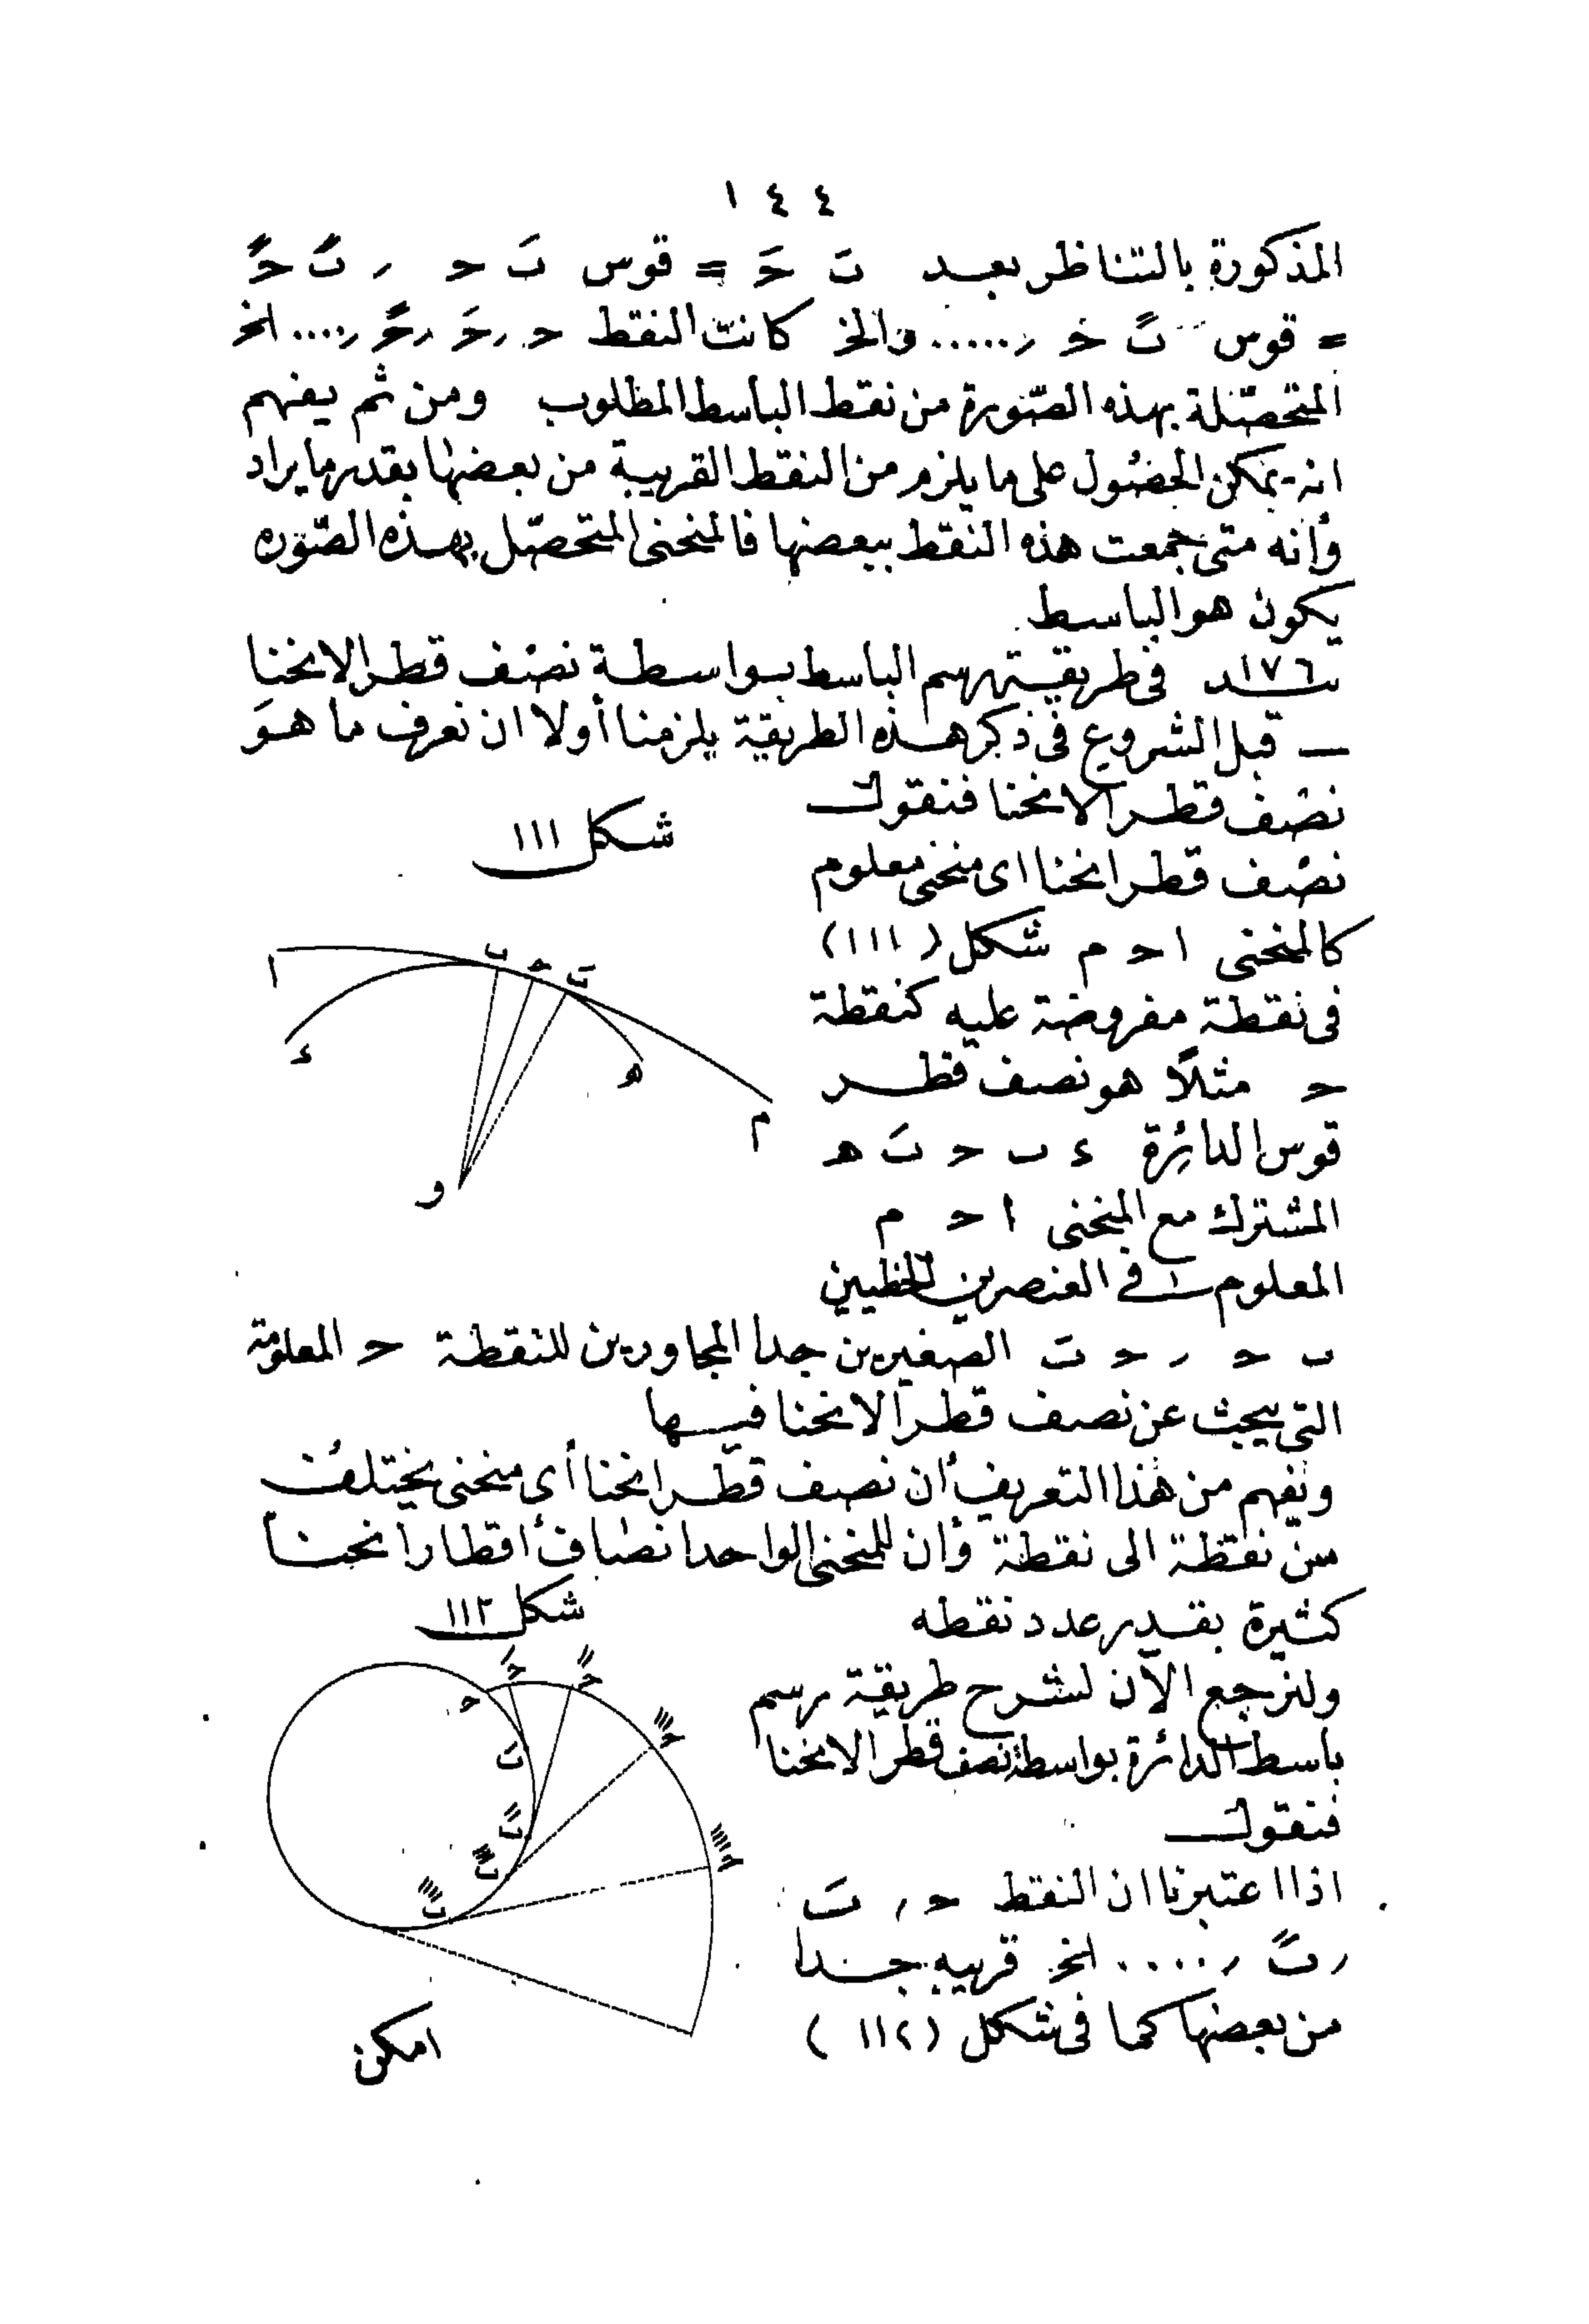 ١٤٤
المذكورة بالتناظر بعد ب حَ = قوس بَ ح ر بً حً
= قوس بً حَ ر ..... والخ كانت النقط ح رحَ رحً ر .... الخ
المتحصلة بهذه الصورة من نقط الباسط المطلوب ومن ثم يفهم
انه يمكن الحصول على ما يلزم من النقط القريبة من بعضها بقدر ما يراد
وأنه متى جمعت هذه النقط ببعضها فالمنحنى المتحصل بهذه الصورة
يكون هو الباسط
١٧٦ فى طريقة رسم الباسط بواسطة نصف قطر الانحنا
— قبل الشروع فى ذكر هذه الطريقة يلزمنا أولا ان نعرف ما هو
نصف قطر الانحنا فنقول
شكل ١١١
نصف قطر انحنا اى منحنى معلوم
كالمنحنى ا ح م شكل (١١١)
فى نقطة مفروضة عليه كنقطة
ح مثلًا هو نصف قطر
قوس الدائرة ء ب ح بَ ه
المشترك مع المنحنى ا ح م
المعلوم فى العنصرين الخطيين
ا ب ح بَ
ء ه م و
ب ح ر ح بَ الصغيرين جدا المجاورين للنقطة ح المعلومة
التى يبحث عن نصف قطر الانحنا فيها
ونفهم من هذا التعريف أن نصف قطر انحنا أى منحنى يختلف
من نقطة الى نقطة وأن للمنحنى الواحد انصاف أقطار انحنا
كثيرة بقدر عدد نقطه
شكل ١١٢
ولنرجع الآن لشرح طريقة رسم
باسط الدائرة بواسطة نصف قطر الانحنا
فنقول
اذا اعتبرنا ان النقط ح ر بَ
ر بً ر .... الخ قريبه جدا
من بعضها كما فى شكل (١١٢)
امكن